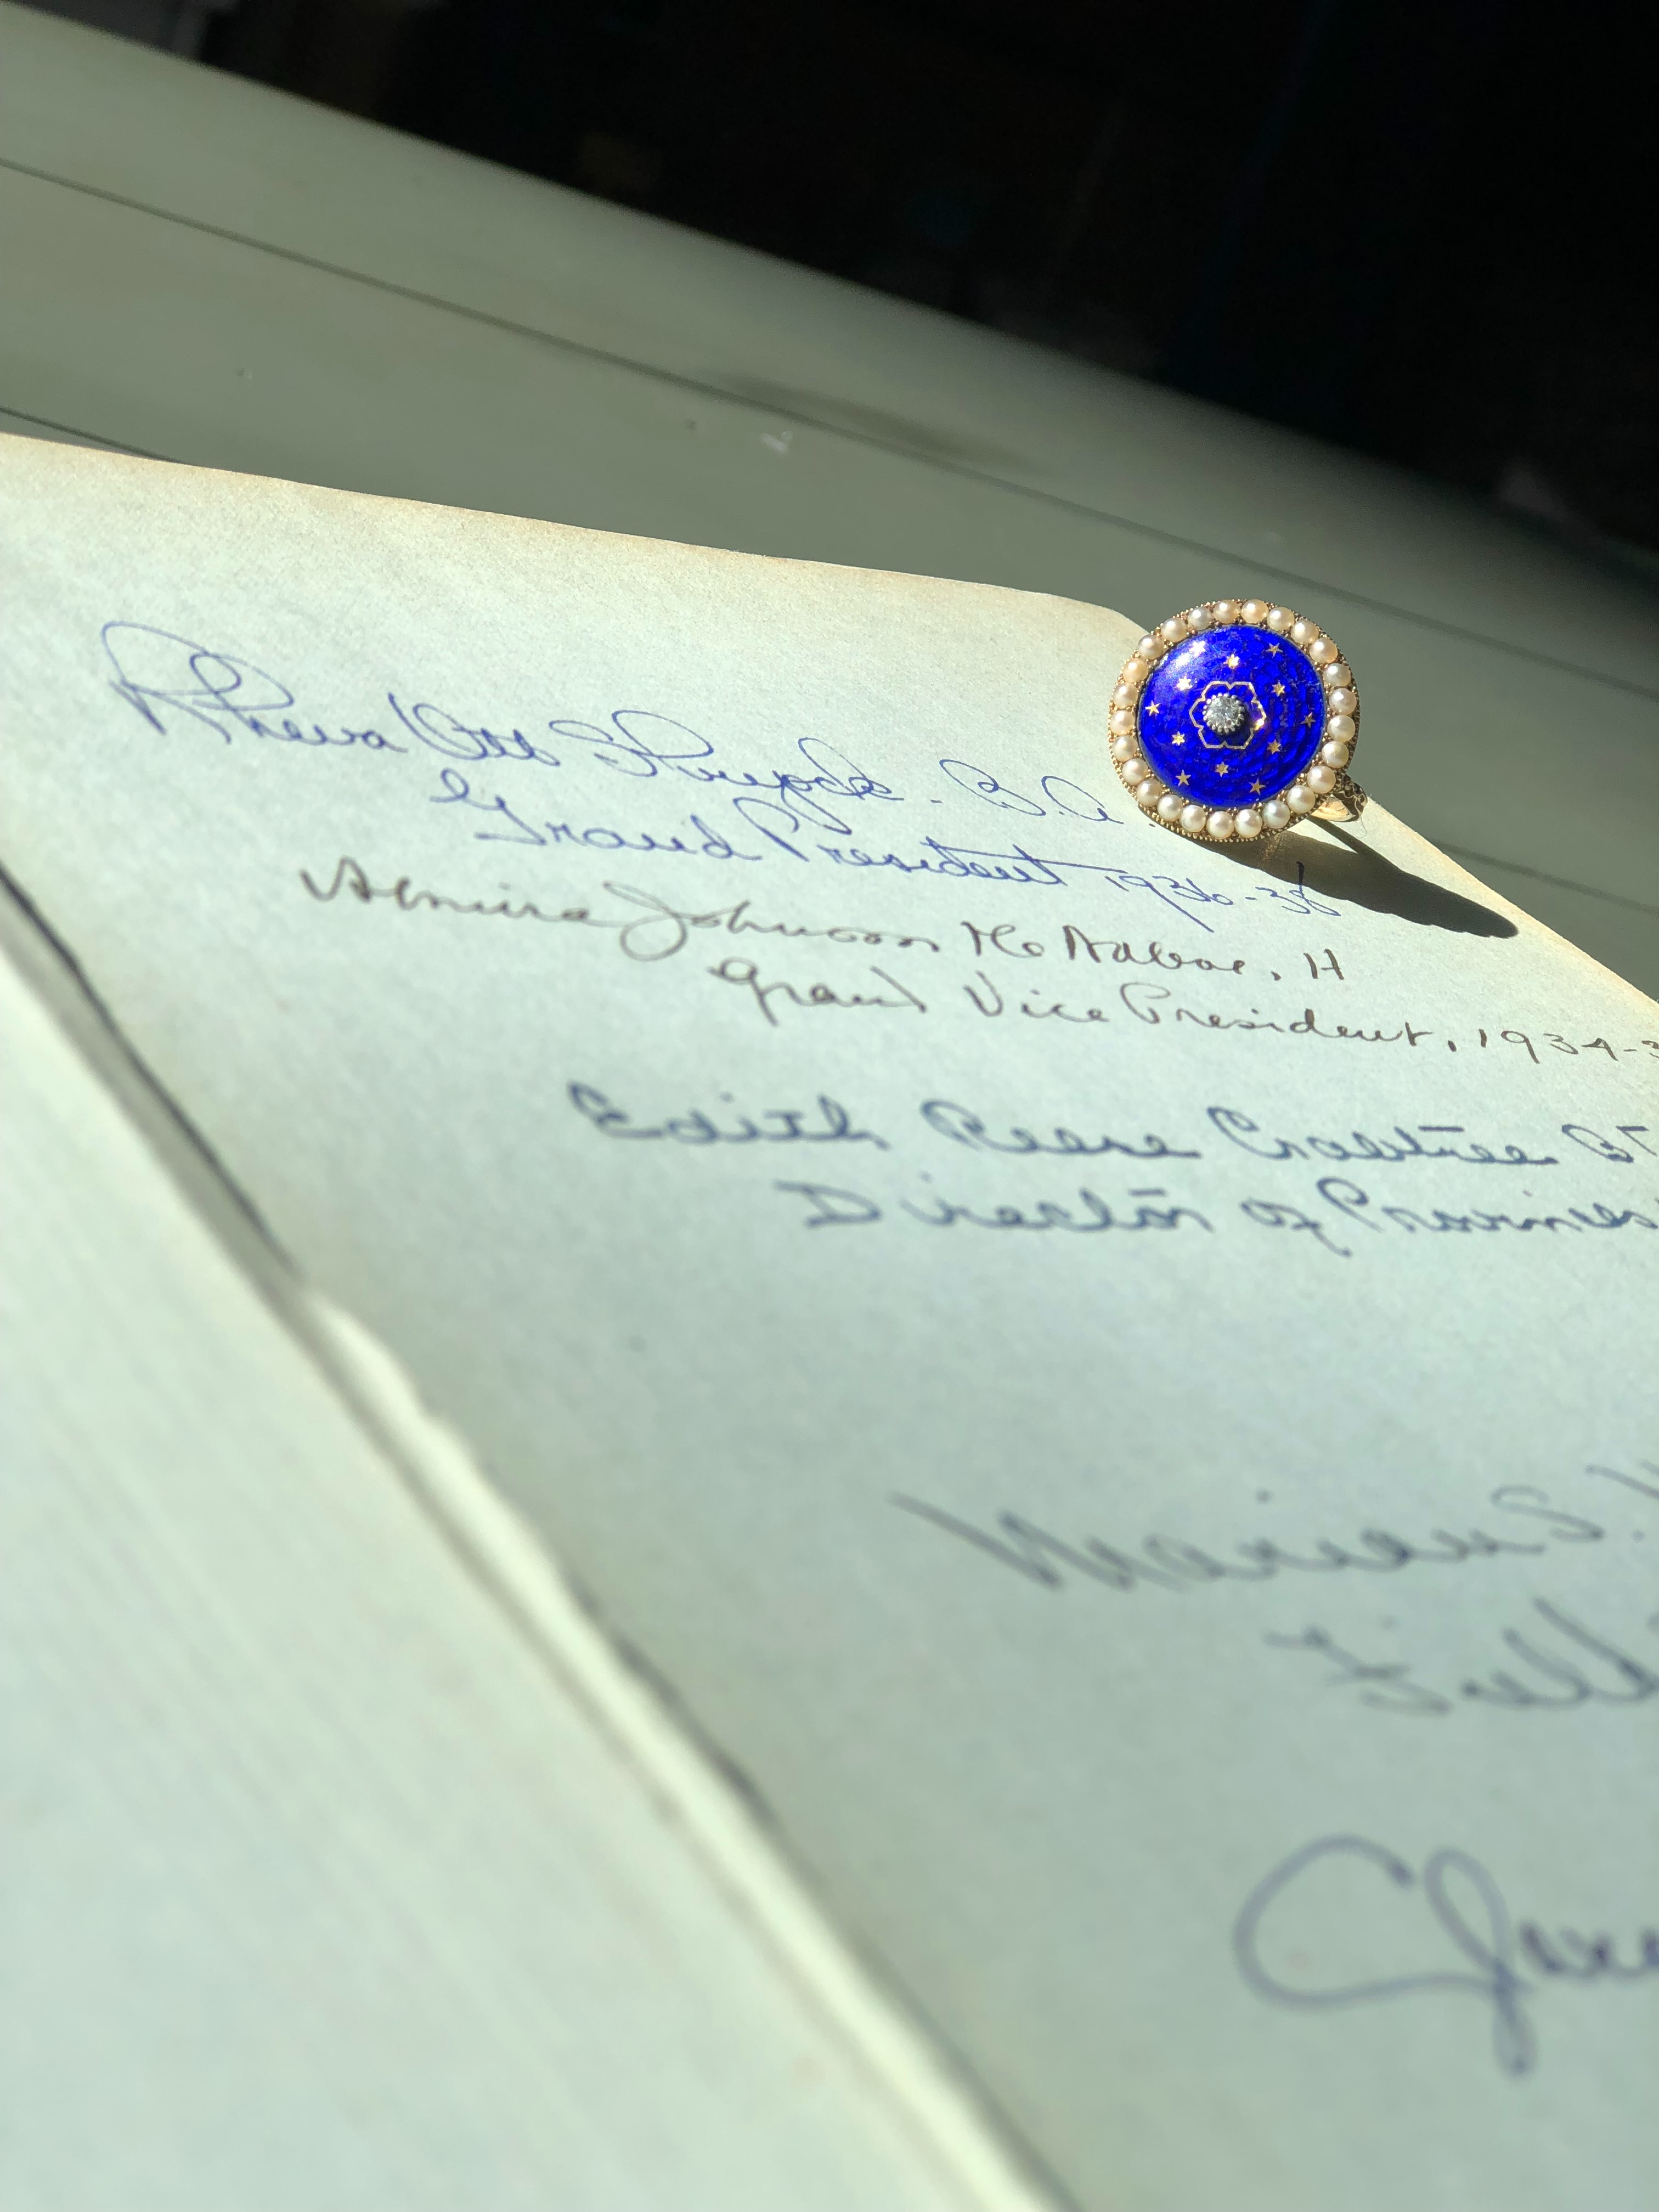 Rheva Ott Shryock - B.A.
Grand President 1936-38
Almira Johnson McNaboe, H
Grand Vice President, 1934-3
Edith Reese Crabtree BΓ
Director of Provinces
Marian S.